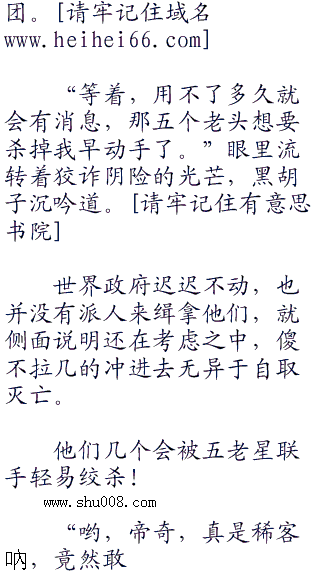 团。[请牢记住域名
www.heihei66.com]
“等着，用不了多久就
会有消息，那五个老头想要
杀掉我早动手了。”眼里流
转着狡诈阴险的光芒，黑胡
子沉吟道。[请牢记住有意思
书院]
世界政府迟迟不动，也
并没有派人来缉拿他们，就
侧面说明还在考虑之中，傻
不拉几的冲进去无异于自取
灭亡。
他们几个会被五老星联
手轻易绞杀！
www.shu008.com
“哟，帝奇，真是稀客
呐，竟然敢